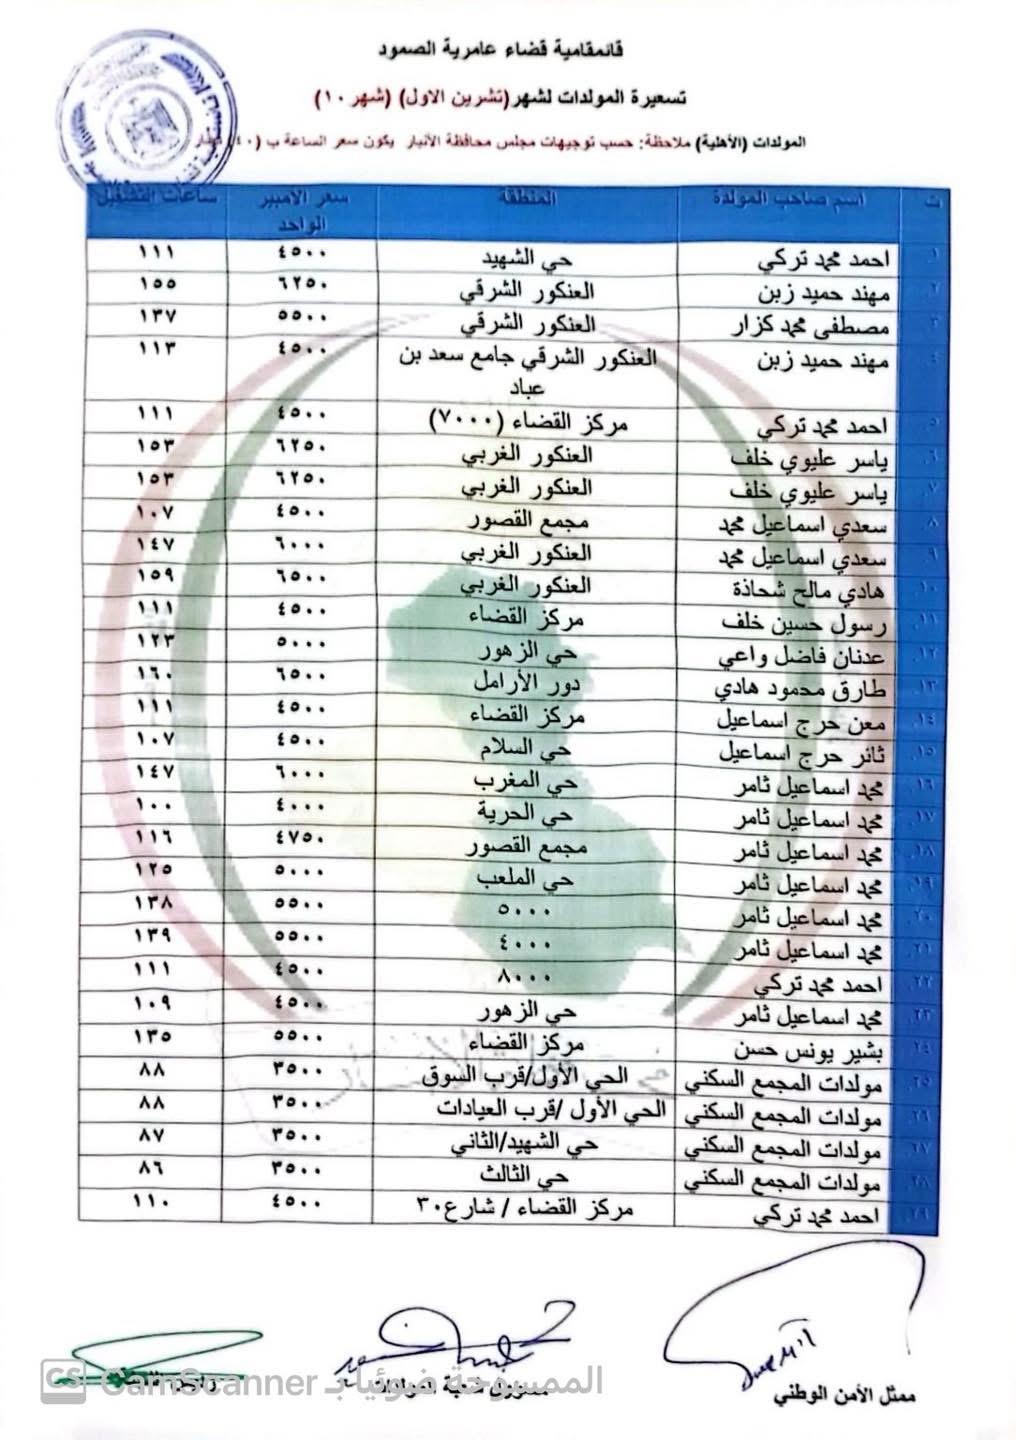 قائمقامية قضاء عامرية الصمود
تسعيرة المولدات لشهر (تشرين الاول) (شهر ١٠)
المولدات (الأهلية) ملاحظة: حسب توجيهات مجلس محافظة الأنبار يكون سعر الساعة ب (٤٠)
ت اسم صاحب المولدة المنطقة سعر الامبير الواحد ساعات التشغيل
١. احمد محمد تركي حي الشهيد ٤٥٠٠ ١١١
٢. مهند حميد زبن العنكور الشرقي ٦٢٥٠ ١٥٥
٣. مصطفى محمد كزار العنكور الشرقي ٥٥٠٠ ١٣٧
٤. مهند حميد زبن العنكور الشرقي جامع سعد بن عباد ٤٥٠٠ ١١٣
٥. احمد محمد تركي مركز القضاء (٧٠٠٠) ٤٥٠٠ ١١١
٦. ياسر عليوي خلف العنكور الغربي ٦٢٥٠ ١٥٣
٧. ياسر عليوي خلف العنكور الغربي ٦٢٥٠ ١٥٣
٨. سعدي اسماعيل محمد مجمع القصور ٤٥٠٠ ١٠٧
٩. سعدي اسماعيل محمد العنكور الغربي ٦٠٠٠ ١٤٧
١٠. هادي مالح شحاذة العنكور الغربي ٦٥٠٠ ١٥٩
١١. رسول حسين خلف مركز القضاء ٤٥٠٠ ١١١
١٢. عدنان فاضل واعي حي الزهور ٥٠٠٠ ١٢٣
١٣. طارق محمود هادي دور الأرامل ٦٥٠٠ ١٦٠
١٤. معن حرج اسماعيل مركز القضاء ٤٥٠٠ ١١١
١٥. ثائر حرج اسماعيل حي السلام ٤٥٠٠ ١٠٧
١٦. محمد اسماعيل ثامر حي المغرب ٦٠٠٠ ١٤٧
١٧. محمد اسماعيل ثامر حي الحرية ٤٠٠٠ ١٠٠
١٨. محمد اسماعيل ثامر مجمع القصور ٤٧٥٠ ١١٦
١٩. محمد اسماعيل ثامر حي الملعب ٥٠٠٠ ١٢٥
٢٠. محمد اسماعيل ثامر ٥٠٠٠ ٥٥٠٠ ١٣٨
٢١. محمد اسماعيل ثامر ٤٠٠٠ ٥٥٠٠ ١٣٩
٢٢. احمد محمد تركي ٨٠٠٠ ٤٥٠٠ ١١١
٢٣. محمد اسماعيل ثامر حي الزهور ٤٥٠٠ ١٠٩
٢٤. بشير يونس حسن مركز القضاء ٥٥٠٠ ١٣٥
٢٥. مولدات المجمع السكني الحي الأول/قرب السوق ٣٥٠٠ ٨٨
٢٦. مولدات المجمع السكني الحي الأول /قرب العيادات ٣٥٠٠ ٨٨
٢٧. مولدات المجمع السكني حي الشهيد/الثاني ٣٥٠٠ ٨٧
٢٨. مولدات المجمع السكني حي الثالث ٣٥٠٠ ٨٦
٢٩. احمد محمد تركي مركز القضاء / شارع٣٠ ٤٥٠٠ ١١٠
ممثل الأمن الوطني
الممسوحة ضوئيا بـ CamScanner
CS